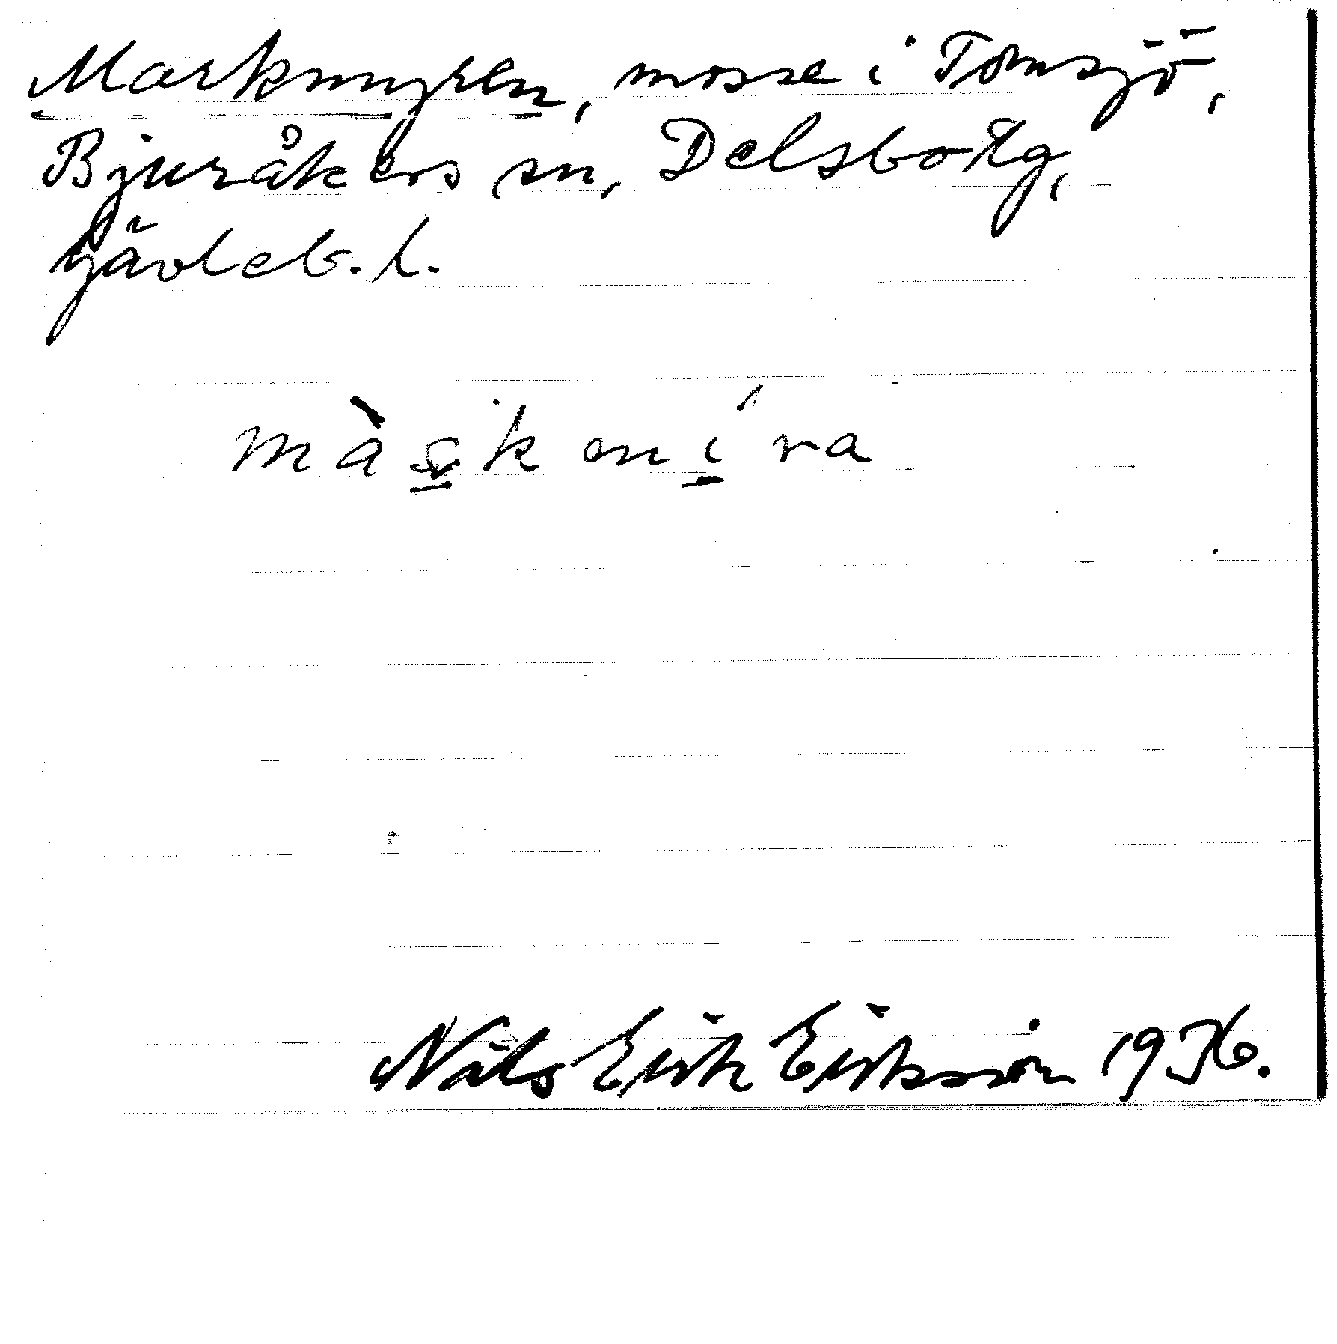 Markmyren, mosse i Tomsjö,
Bjuråkers sn, Delsbo tg,
Gävleb. l.
Nils Erik Eriksson 1936.